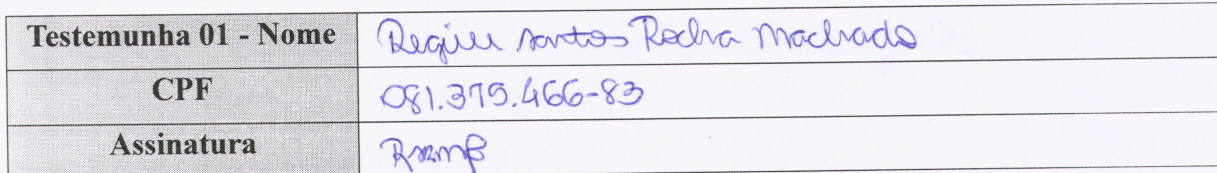 Testemunha 01 - Nome Regiele santos Rocha Machado
CPF 081.375.466-83
Assinatura